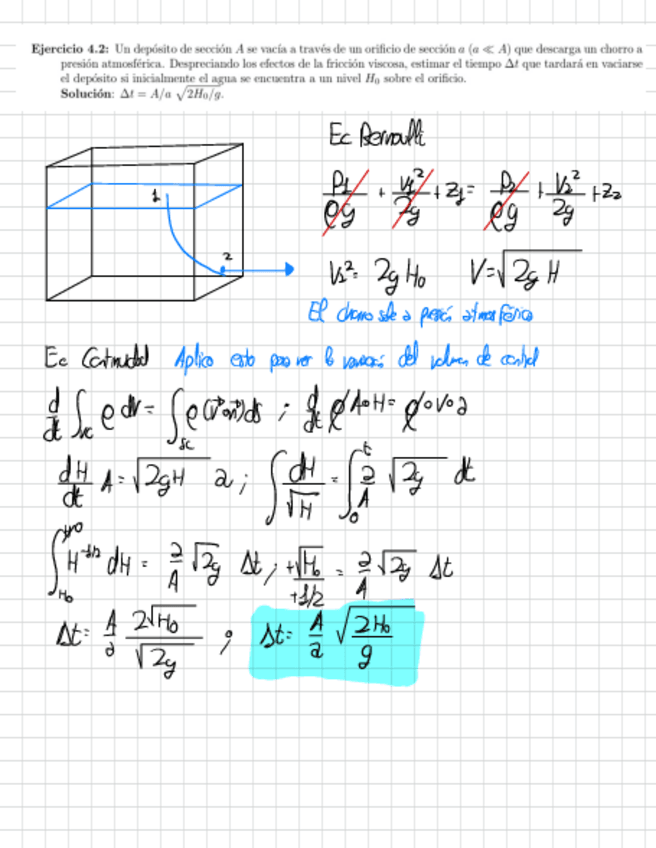 Ejercicio 4.2: Un depósito de sección A se vacía a través de un orificio de sección a (a ≪ A) que descarga un chorro a
presión atmosférica. Despreciando los efectos de la fricción viscosa, estimar el tiempo Δt que tardará en vaciarse
el depósito si inicialmente el agua se encuentra a un nivel H₀ sobre el orificio.
Solución: Δt = A/a √(2H₀/g).
Ec Bernoulli
P₁/ρg + V₁²/2g + z₁ = P₂/ρg + V₂²/2g + z₂
1
2
V₂² = 2g H₀ V = √(2g H)
El chorro sale a presión atmosférica
Ec Continuidad Aplico esto para ver la variación del volumen de control
d/dt ∫vc ρ dv = ∫sc ρ(v·n)ds ; d/dt ρ A·H = ρ·V·a
dH/dt A = √(2gH) a ; ∫ dH/√H = ∫₀ᵗ a/A √(2g) dt
∫ H^(-1/2) dH = a/A √(2g) Δt ; +√H₀/+1/2 = a/A √(2g) Δt
Δt = A/a 2√H₀/√(2g) ; Δt = A/a √(2H₀/g)